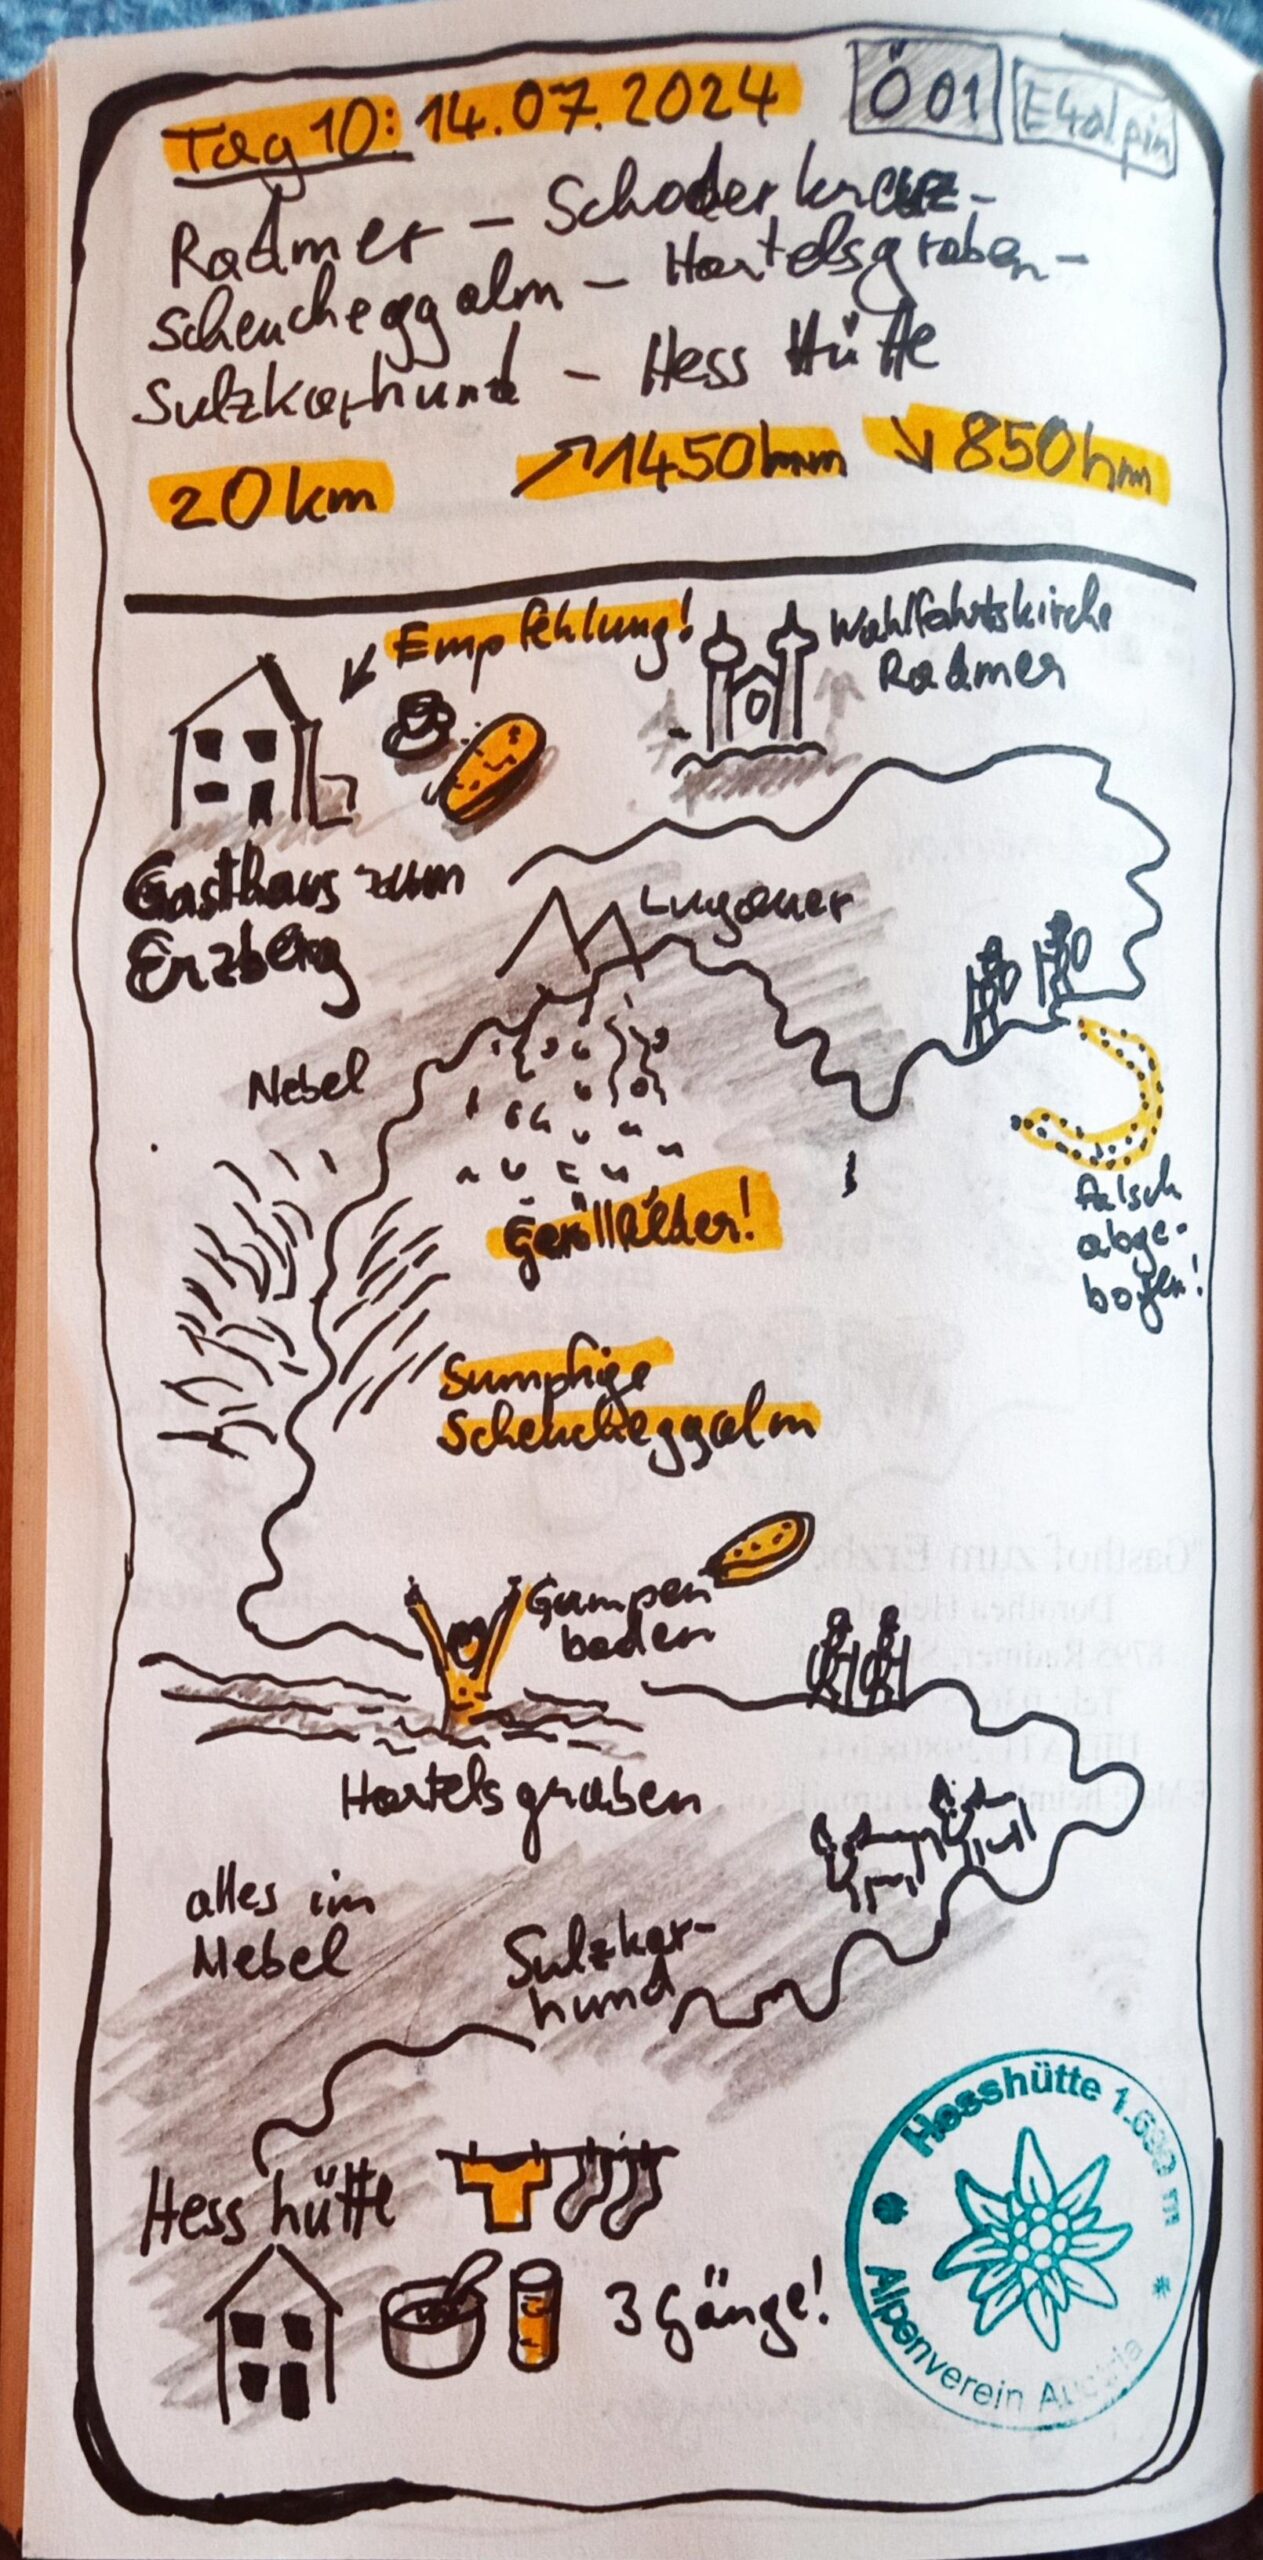 Tag 10: 14.07.2024
Ö 01
E4alpin
Radmer - Schoderkreuz -
Scheucheggalm - Hartelsgraben -
Sulzkarhund - Hess Hütte
20 km ↗1450hm ↘850hm
Empfehlung!
Wahlfahrtskirche
Radmer
Gasthaus zum
Erzberg
Lugauer
Nebel
Geröllfelder!
falsch
abge-
bogen!
Sumpfige
Scheucheggalm
Gampen
boden
Hartelsgraben
alles im
Nebel
Sulzkar-
hund
Hesshütte
3 Gänge!
Hesshütte 1.699 m
Alpenverein Austria